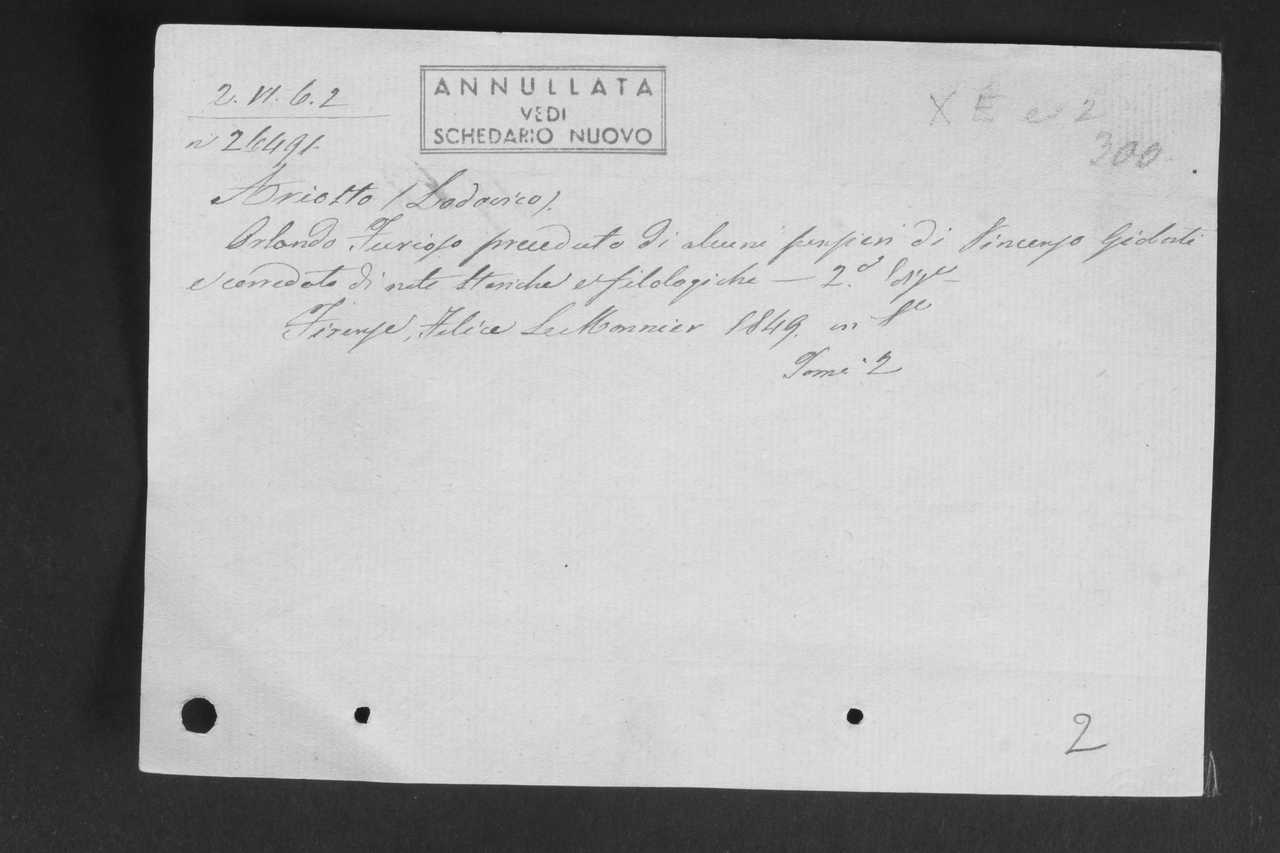 2. VI. 6. 2
ANNULLATA
VEDI
SCHEDARIO NUOVO
X E 2
300
n 26491
Ariosto (Lodovico).
Orlando Furioso preceduto di alcuni pensieri di Vincenzo Gioberti
e corredato di note storiche e filologiche — 2.a
Firenze, Felice Le Monnier 1849. in 8o
Tomi 2
2